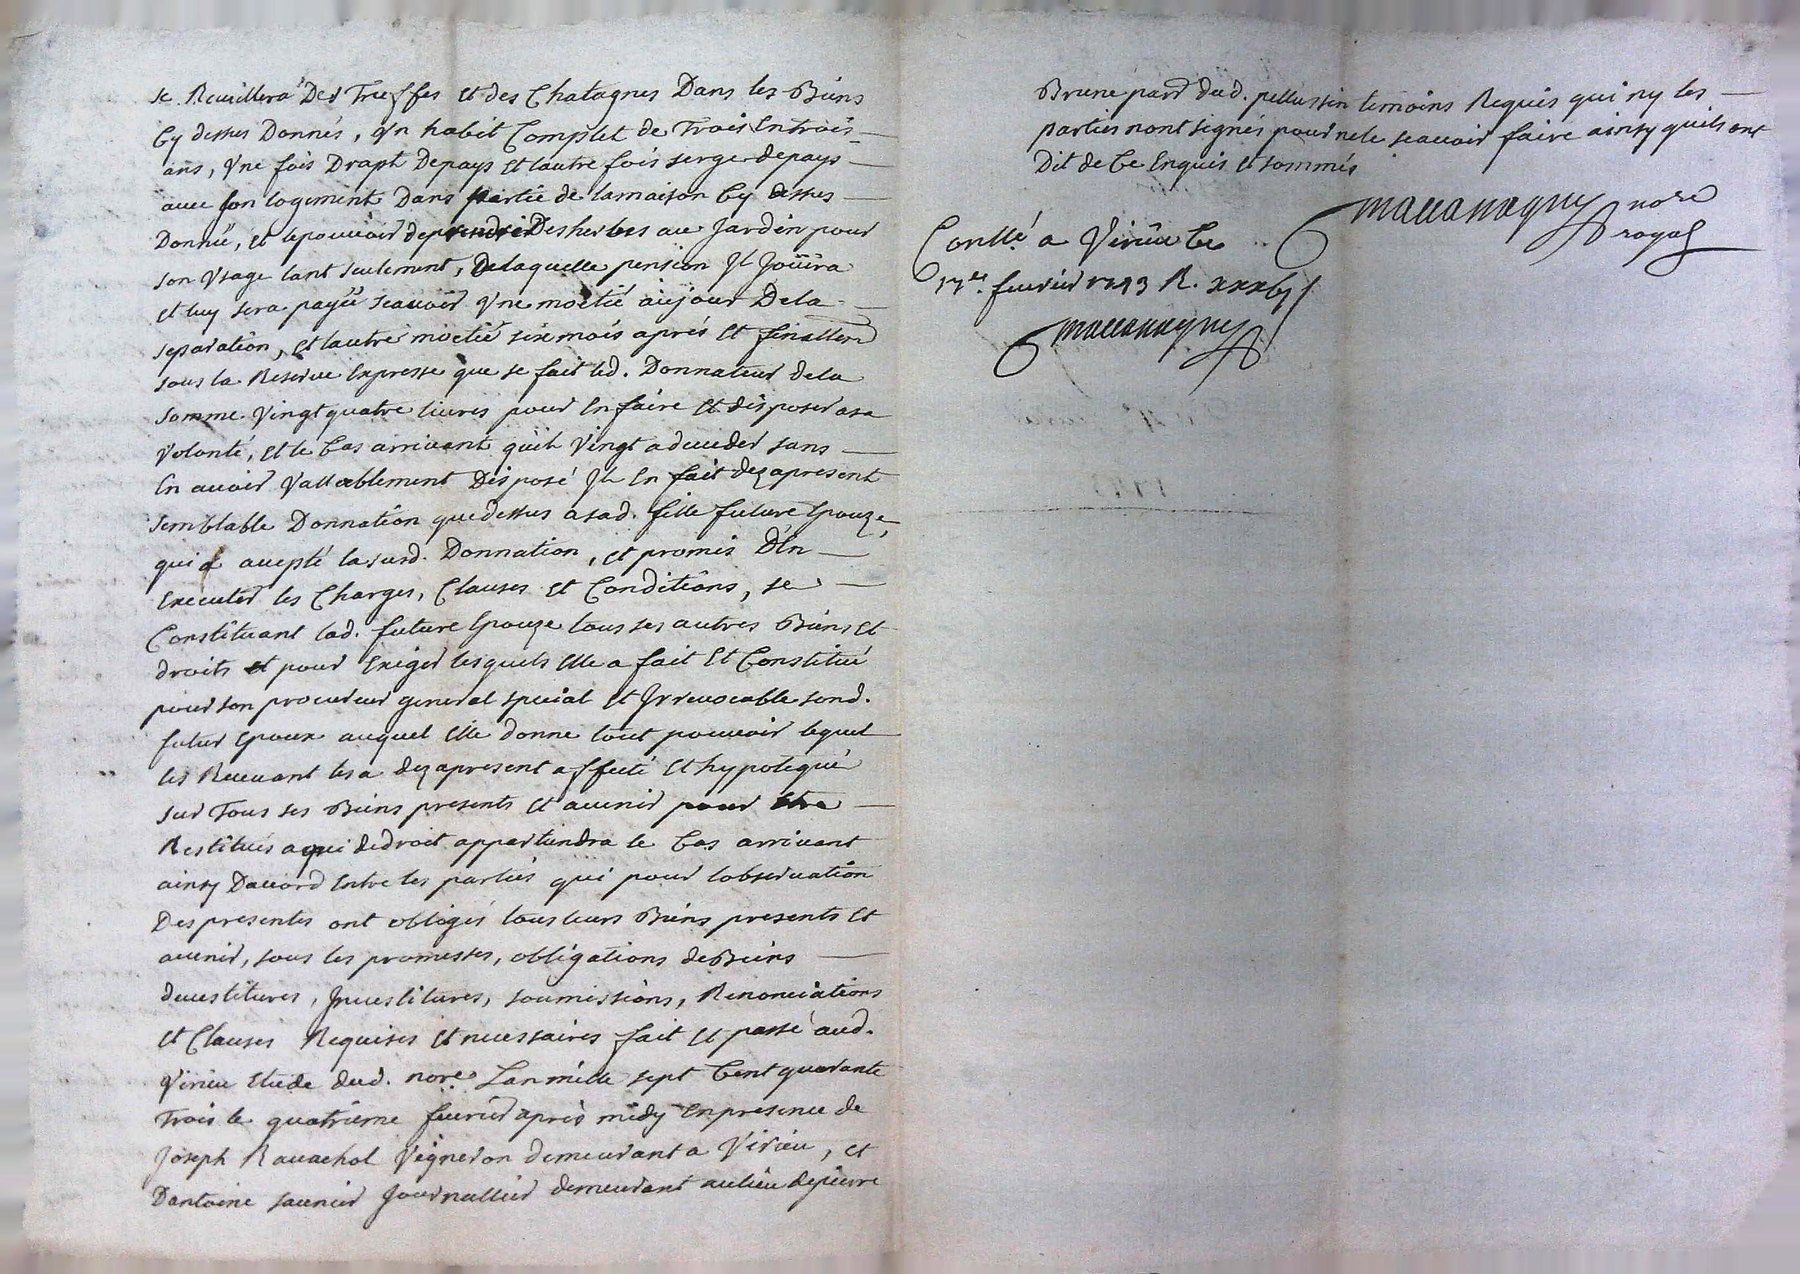 se Recüillera Des Trüeffes et des Chatagnes Dans les Biens
Cy dessus Donnés, Vn habit Complet de Trois En trois
ans, Vne fois Drapt De pays Et lautre fois serge de pays
avec son logement Dans partie de la maison Cy dessus
Donnée, et le pouvoir de prendre Des herbes au Jardin pour
son Vsage tant seulement, De laquelle pension Jl Joüira
et luy sera payée scavoir Vne moetié au jour De la
separation, et lautre moetié six mois aprés Et finallem.t
sous la Reserve Expresse que se fait led. Donnateur de la
somme Vingt quatre livres pour En faire Et disposer a sa
Volonté, et le Cas arrivant quil Vingt a deceder sans
En avoir Vallablement Disposé Jl En fait dez a present
semblable Donnation que dessus a sad. fille future Epouze,
qui a accepté la susd. Donnation, et promis D'En
Executer les Charges, Clauses Et Conditions, se
Constituant lad. future Epouze tous ses autres Biens Et
droits et pour Exiger lesquels Elle a fait Et Constitué
pour son procureur general special et Jrrevocable sond.
futur Epoux auquel Elle donne tout pouvoir lequel
les Recevant les a dez a present affecté Et hypotequé
sur Tous ses Biens presents Et avenir pour Etre
Restitués a qui de droit appartiendra le Cas arrivant
ainsy Daccord Entre les parties qui pour lobservation
Des presentes ont obligés tous leurs Biens presents Et
avenir, sous les promesses, obligations de Biens
devestitures, Jnvestitures, soumissions, Renonciations
et Clauses Requises Et necessaires fait Et passé aud.
Virieu Etude dud. nore. Lan mille sept Cent quarante
Trois le quatrieme fevrier après midy En presence de
Joseph Ravachol Vigneron demeurant a Virieu, et
Dantoine saunier Journallier demeurant au lieu de pierre
Brune parr. dud. pellussin temoins Requis qui ny les
parties nont signés pour ne le scavoir faire ainsy quils ont
Dit de Ce Enquis Et sommés
nore
royal
Conllé a Virieu Ce
17.e fevrier 1743 R. xxx